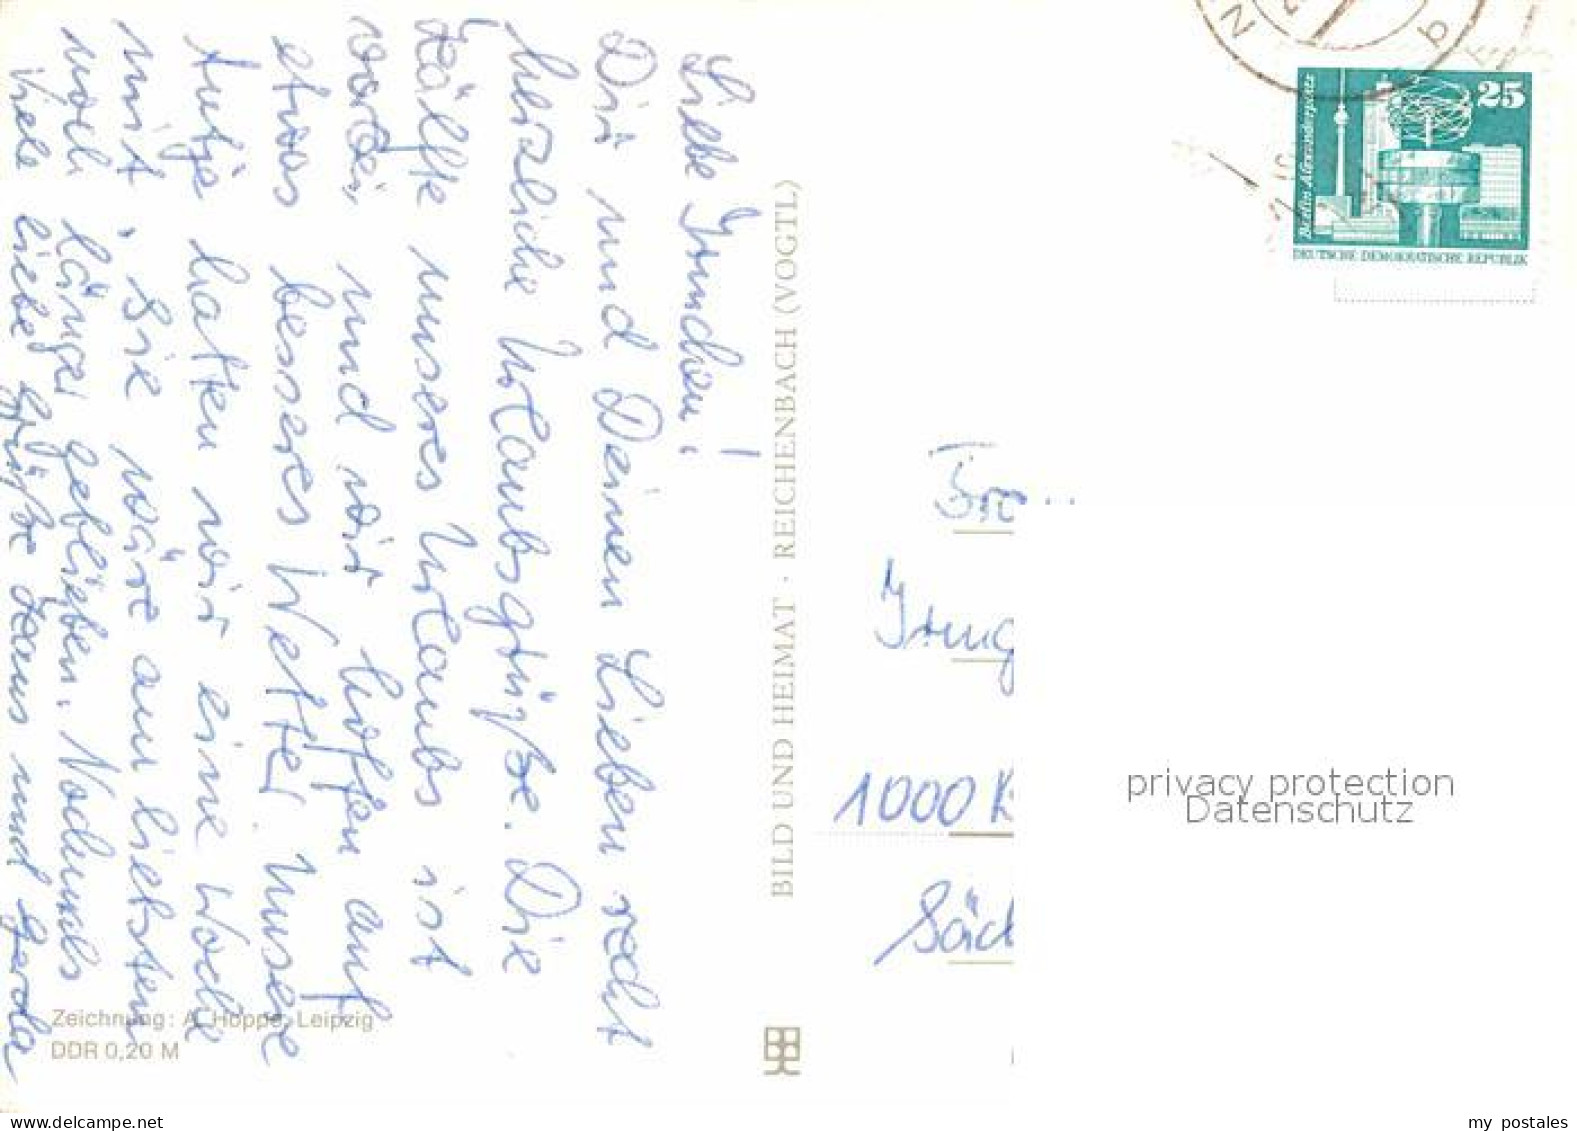 Liebe Irmchen!
Dir und Deinen Lieben recht
herzliche Urlaubsgrüße. Die
Hälfte unseres Urlaubs ist
vorbei und wir hoffen auf
etwas besseres Wetter. Unsere
Antje hatten wir eine Woche
mit, sie wäre am liebsten
noch länger geblieben. Nochmals
viele liebe Grüße Hans und Gerda
Zeichnung: A. Hoppe, Leipzig
DDR 0,20 M
BILD UND HEIMAT · REICHENBACH (VOGTL)
25
Berlin Alexanderplatz
DEUTSCHE DEMOKRATISCHE REPUBLIK
Irmg
1000 K
Säch
privacy protection
Datenschutz
my postales
www.delcampe.net